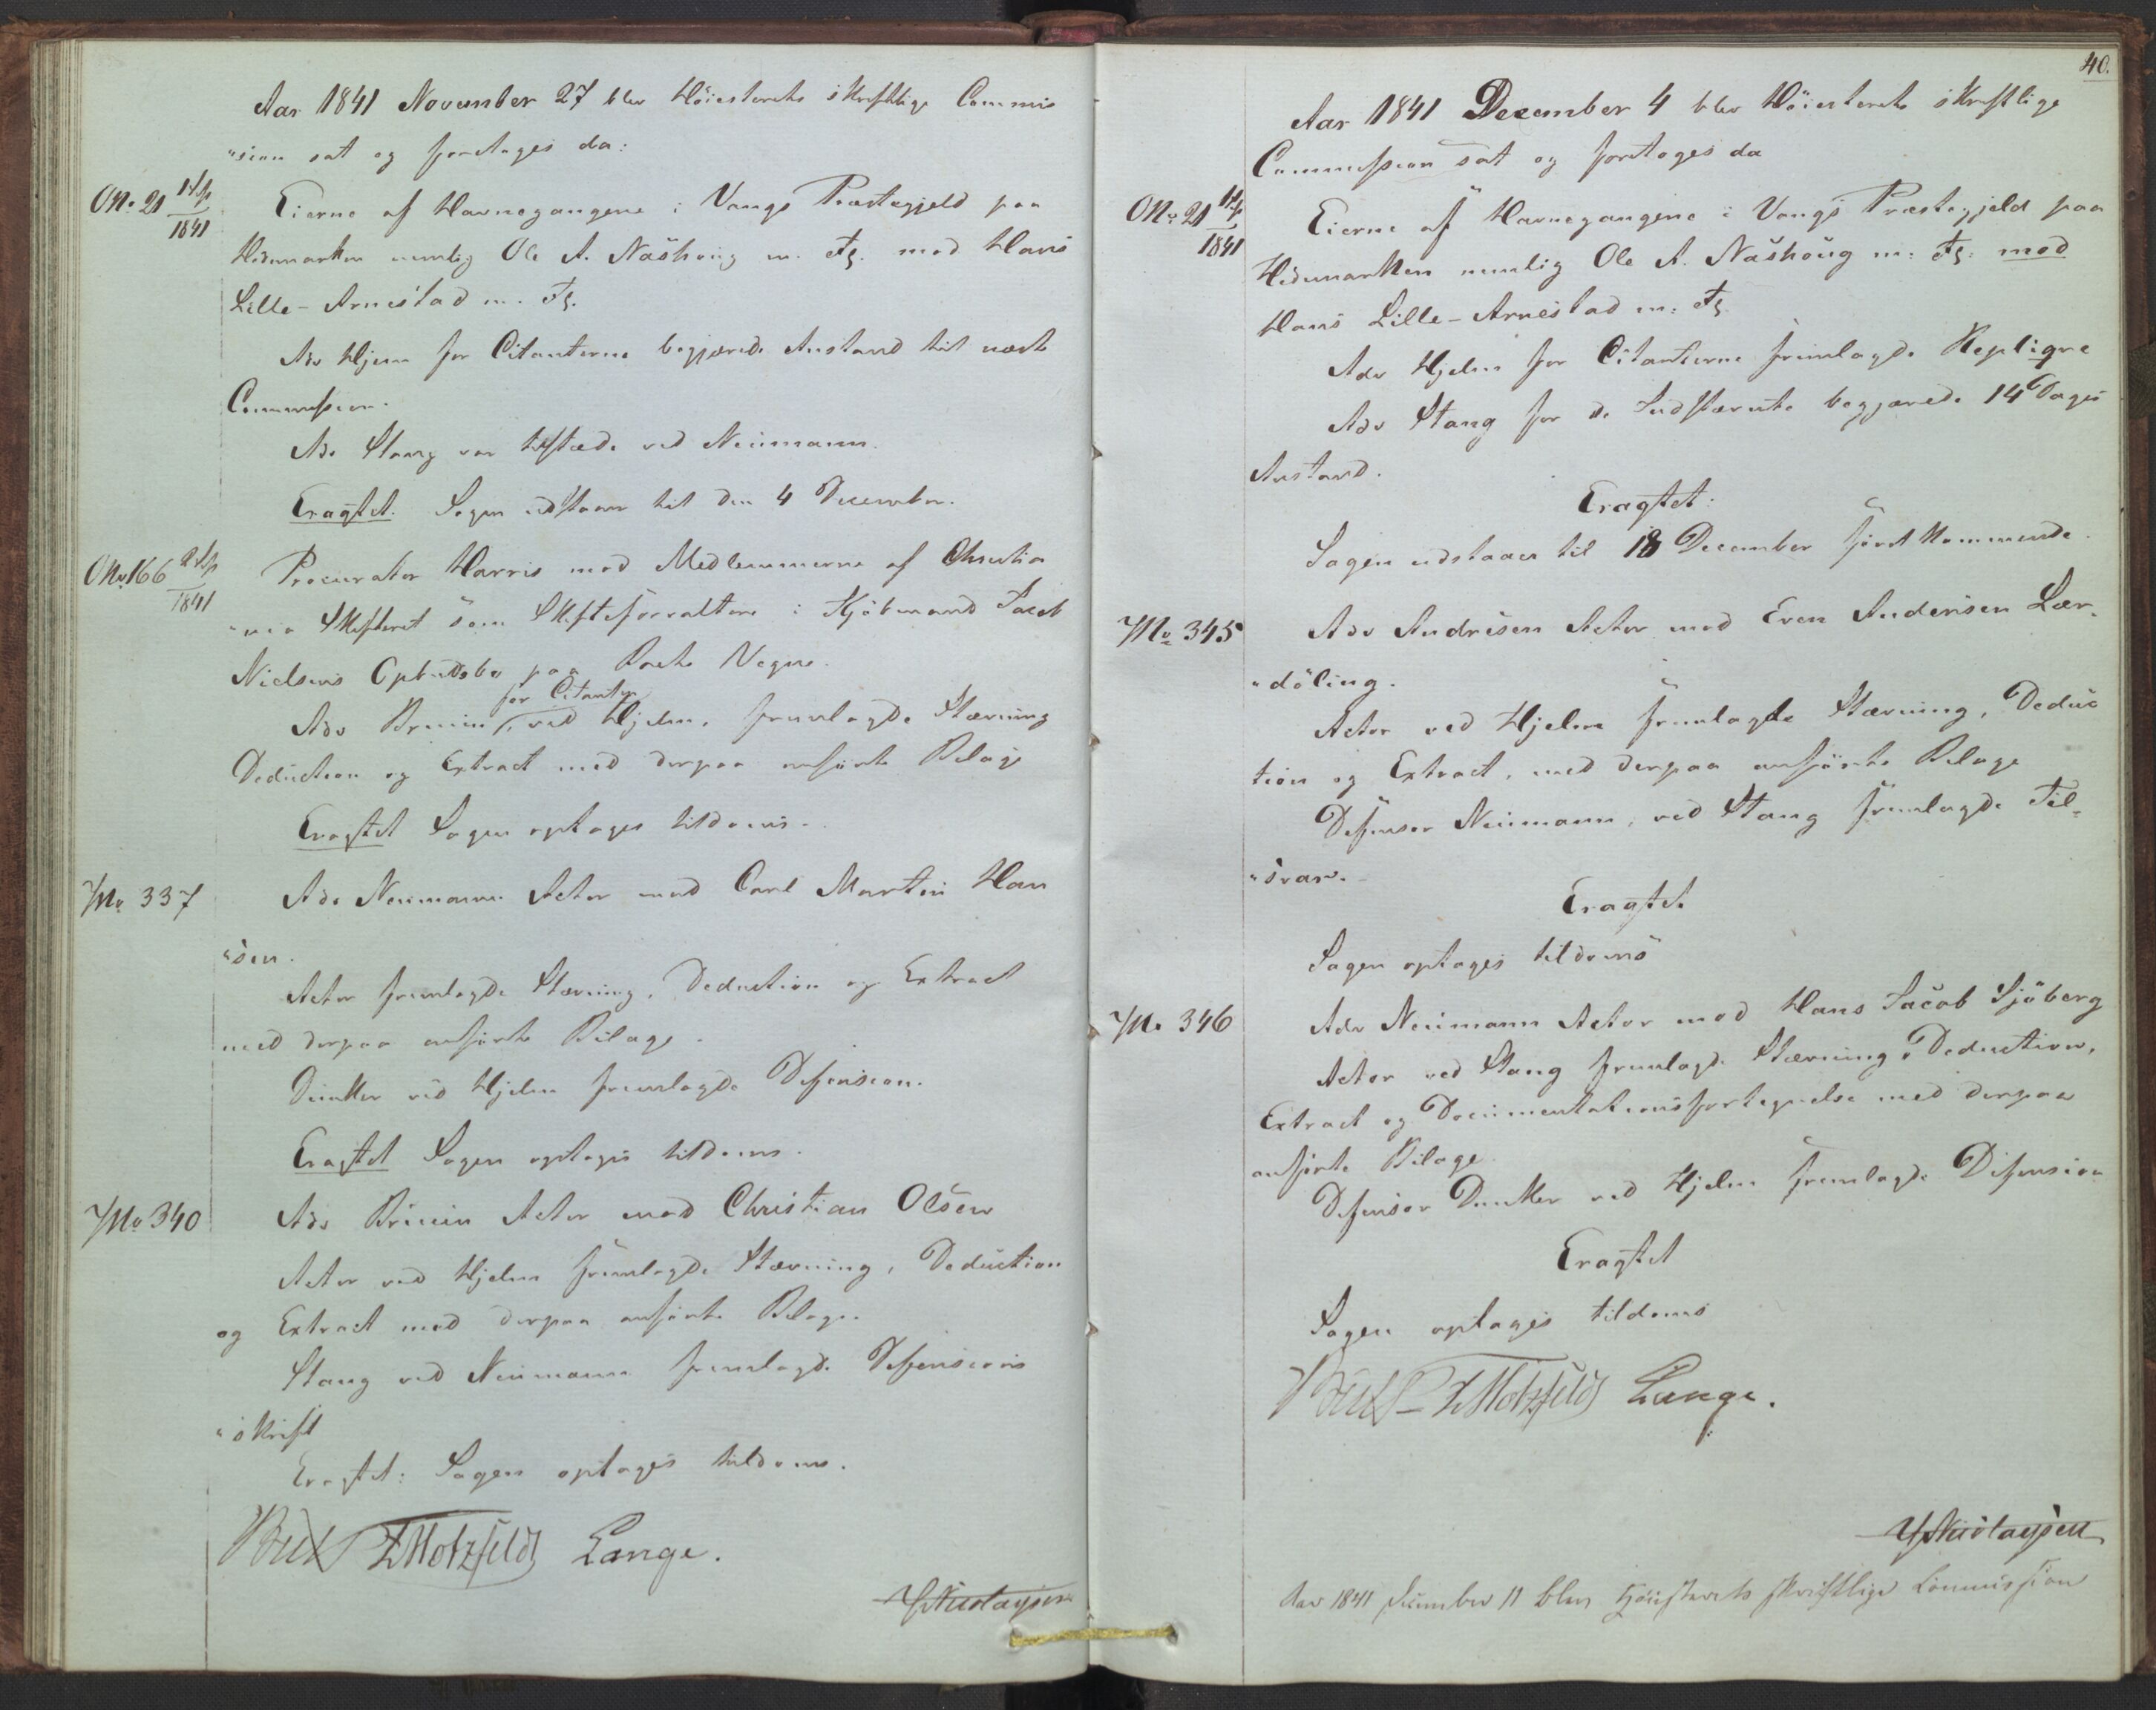 Aar 1841 November 27 blev Höiesterets skriftlige Commis
"sion sat og foretoges da:
ONo 21 1ste/1841
Eierne af Havnegangene i Vangs Præstegjeld paa
Hedemarken nemlig Ole A. Nashoug m. Fl. mod Hans
Lille-Arnestad m. Fl.
Adv Hjelm for Citanterne begjærede Anstand til næste
Commission.
Adv Stang var tilstæde ved Neumann.
Eragtet. Sagen udstaaer til den 4 December.
ONo 166 2/1841
Procurator Harris mod Medlemmerne af Christia
"nia Skifteret som Skifteforvaltere i Kjöbmand Jacob
Nielsens Opbudsbo paa Boets Vegne.
for Citanten
Adv Bruun, ved Hjelm, fremlagde Stævning
Deduction og Extract med derpaa anförte Bilage
Eragtet Sagen optages tildoms.
No 337
Adv Neumann Actor mod Carl Martin Han
"sen.
Actor fremlagde Stævning, Deduction og Extract
med derpaa anförte Bilage.
Dunker ved Hjelm fremlagde Defension.
Eragtet Sagen optages tildoms.
No 340
Adv Bruun Actor mod Christian Olsen
Actor ved Hjelm fremlagde Stævning, Deduction
og Extract med derpaa anförte Bilage.
Stang ved Neumann fremlagde Defensions
"skrift
Eragtet: Sagen optages tildoms.
Motzfeldt Lange.
Nicolaysen
40.
Aar 1841 December 4 blev Höiesterets skriftlige
Commission sat og foretoges da
ONo 21 1ste/1841
Eierne af Havnegangene i Vangs Præstegjeld paa
Hedemarken nemlig Ole A. Nashoug m: Fl: mod
Hans Lille-Arnestad m: Fl.
Adv Hjelm for Citanterne fremlagde Repliqve
Adv Stang for de Indstævnte begjærede 14 Dages
Anstand.
Eragtet:
Sagen udstaaer til 18 December förstkommende.
No 345
Adv Andresen Actor mod Even Andersen Lær-
"döling.
Actor ved Hjelm fremlagde Stævning, Deduc
tion og Extract, med derpaa anförte Bilage
Defensor Neumann, ved Stang fremlagde Til-
"svar.
Eragtet
Sagen optages tildoms
No 346
Adv Neumann Actor mod Hans Jacob Sjöberg
Actor ved Stang fremlagde Stævning, Deduction,
Extract og Documentationsfortegnelse med derpaa
anförte Bilage
Defensor Dunker ved Hjelm fremlagde Defension
Eragtet
Sagen optages tildoms
Motzfeldt Lange.
Nicolaysen
Aar 1841 December 11 blev Höiesterets skriftlige Commission